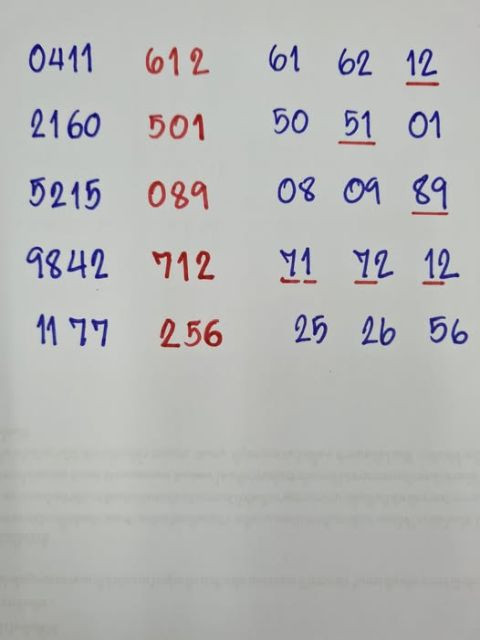 0411 612 61 62 12
2160 501 50 51 01
5215 089 08 09 89
9842 712 71 72 12
1177 256 25 26 56